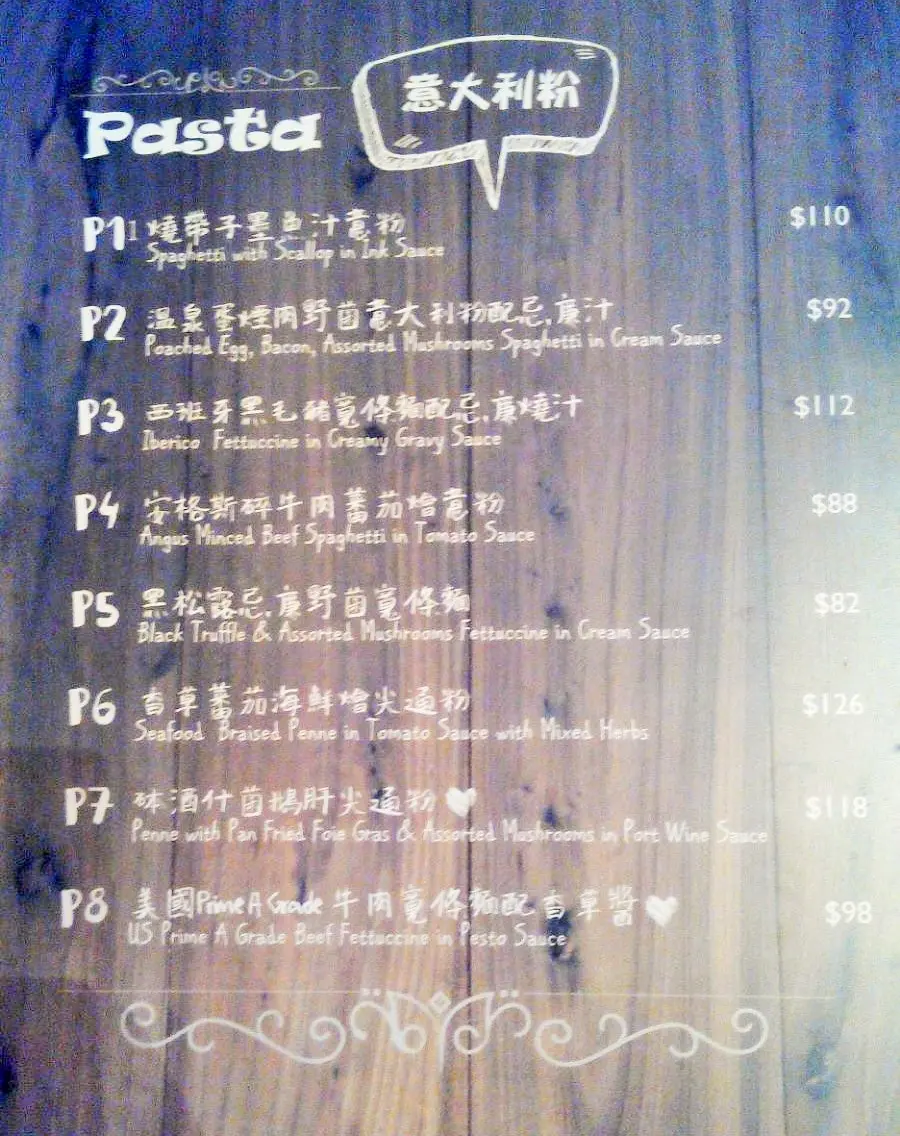 Pasta
意大利粉
P1 燒帶子墨魚汁意粉 $110
Spaghetti with Scallop in Ink Sauce
P2 温泉蛋煙肉野菌意大利粉配忌廉汁 $92
Poached Egg, Bacon, Assorted Mushrooms Spaghetti in Cream Sauce
P3 西班牙黑毛豬寬條麵配忌廉燒汁 $112
Iberico Fettuccine in Creamy Gravy Sauce
P4 安格斯碎牛肉蕃茄燴意粉 $88
Angus Minced Beef Spaghetti in Tomato Sauce
P5 黑松露忌廉野菌寬條麵 $82
Black Truffle & Assorted Mushrooms Fettuccine in Cream Sauce
P6 香草蕃茄海鮮燴尖通粉 $126
Seafood Braised Penne in Tomato Sauce with Mixed Herbs
P7 砵酒什菌鵝肝尖通粉 $118
Penne with Pan Fried Foie Gras & Assorted Mushrooms in Port Wine Sauce
P8 美國Prime A Grade 牛肉寬條麵配香草醬 $98
US Prime A Grade Beef Fettuccine in Pesto Sauce